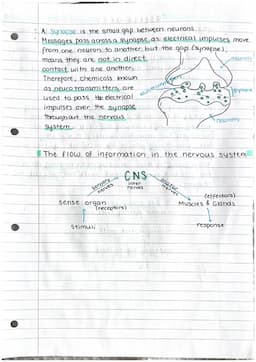 A synapse is the small gap between neurons.
Messages pass across a synapse as electrical impulses move
from one neuron to another but the gap (synapse),
means they are not in direct
contact with one another.
Therefore, chemicals known
as neurotransmitters, are
used to pass the electrical
impulses over the synapse
throughout the nervous
system.
neuron
synapse
neuron
The flow of information in the nervous system
CNS
sensory nerves
inner nerves
motor nerves
sense organ
(receptors)
(effectors)
Muscles & Glands
stimuli
response